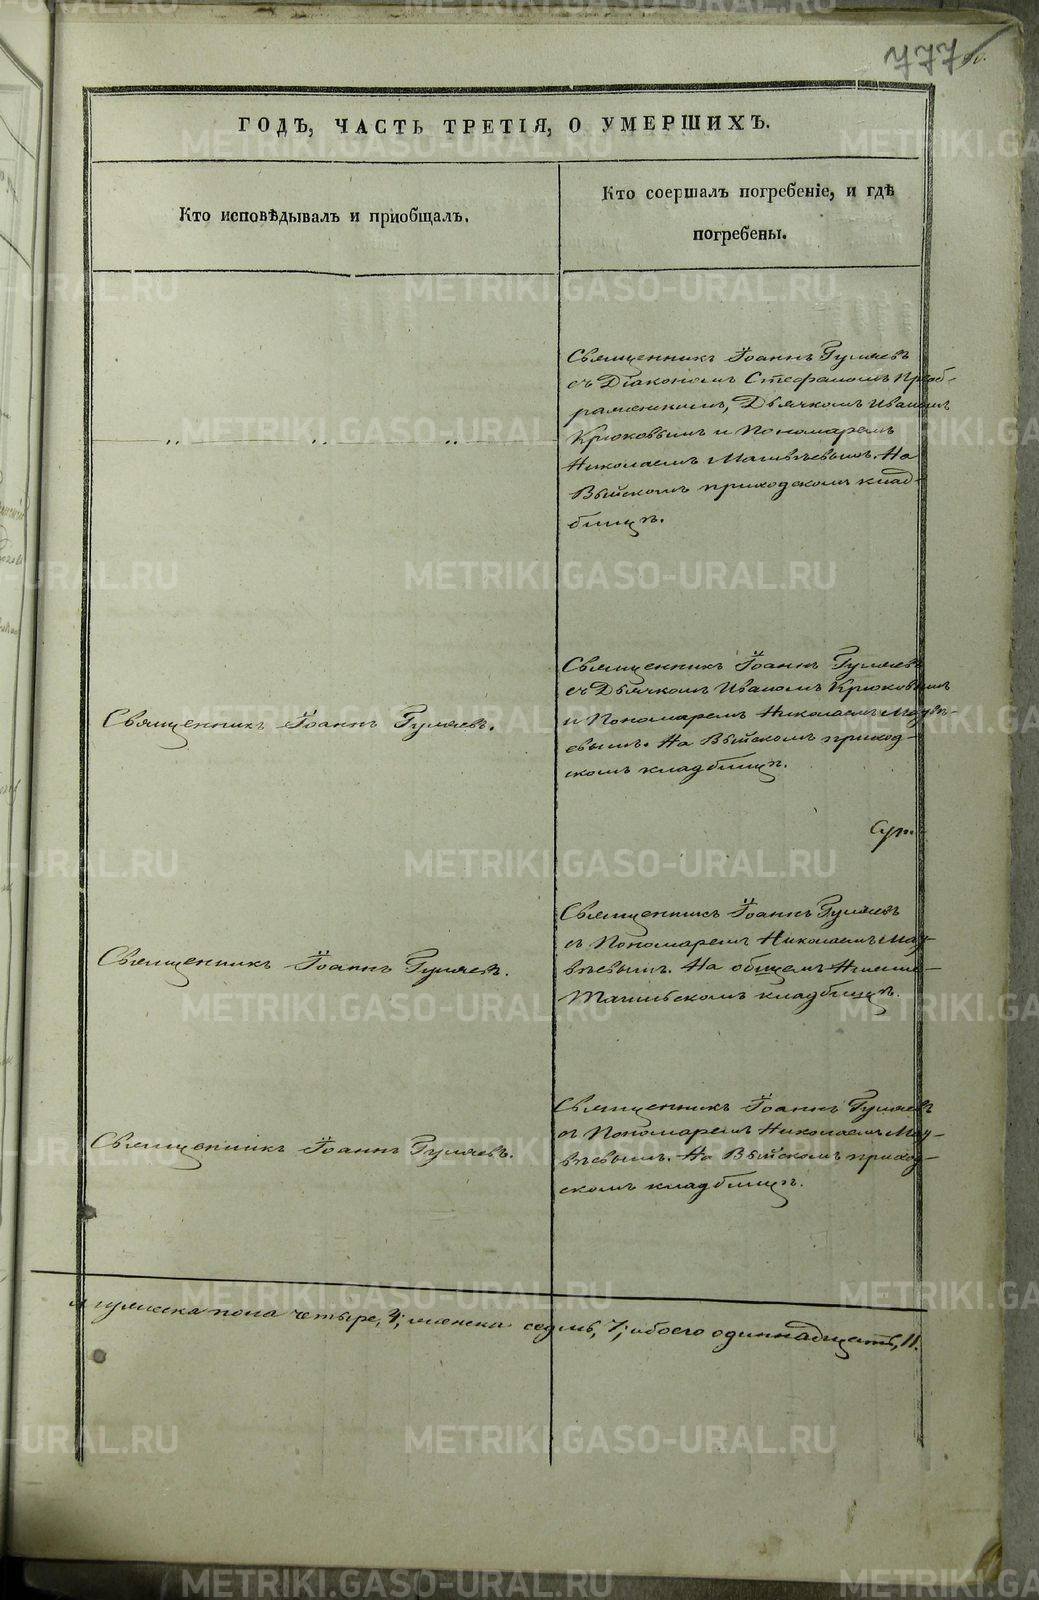 777
ГОДЪ, ЧАСТЬ ТРЕТІЯ, О УМЕРШИХЪ.
Кто исповѣдывалъ и приобщалъ.
Кто соершалъ погребеніе, и гдѣ
погребены.
Священникъ Іоаннъ Гуляевъ
съ Діакономъ Стефаномъ Преоб-
раженскимъ, Дьячкомъ Иваномъ
Крюковымъ и Пономаремъ
Николаемъ Матвѣевымъ. На
Выйскомъ приходскомъ клад-
бищѣ.
Священникъ Іоаннъ Гуляевъ.
Священникъ Іоаннъ Гуляевъ
съ Дьячкомъ Иваномъ Крюковымъ
и Пономаремъ Николаемъ Матвѣ-
евымъ. На Выйскомъ приход-
скомъ кладбищѣ.
Священникъ Іоаннъ Гуляевъ.
Священникъ Іоаннъ Гуляевъ
съ Пономаремъ Николаемъ Мат-
вѣевымъ. На общемъ Нижне-
Тагильскомъ кладбищѣ.
Священникъ Іоаннъ Гуляевъ.
Священникъ Іоаннъ Гуляевъ
съ Пономаремъ Николаемъ Мат-
вѣевымъ. На Выйскомъ приход-
скомъ кладбищѣ.
мужеска пола четыре, 4; женска седмь, 7; обоего одиннадцать, 11.
METRIKI.GASO-URAL.RU